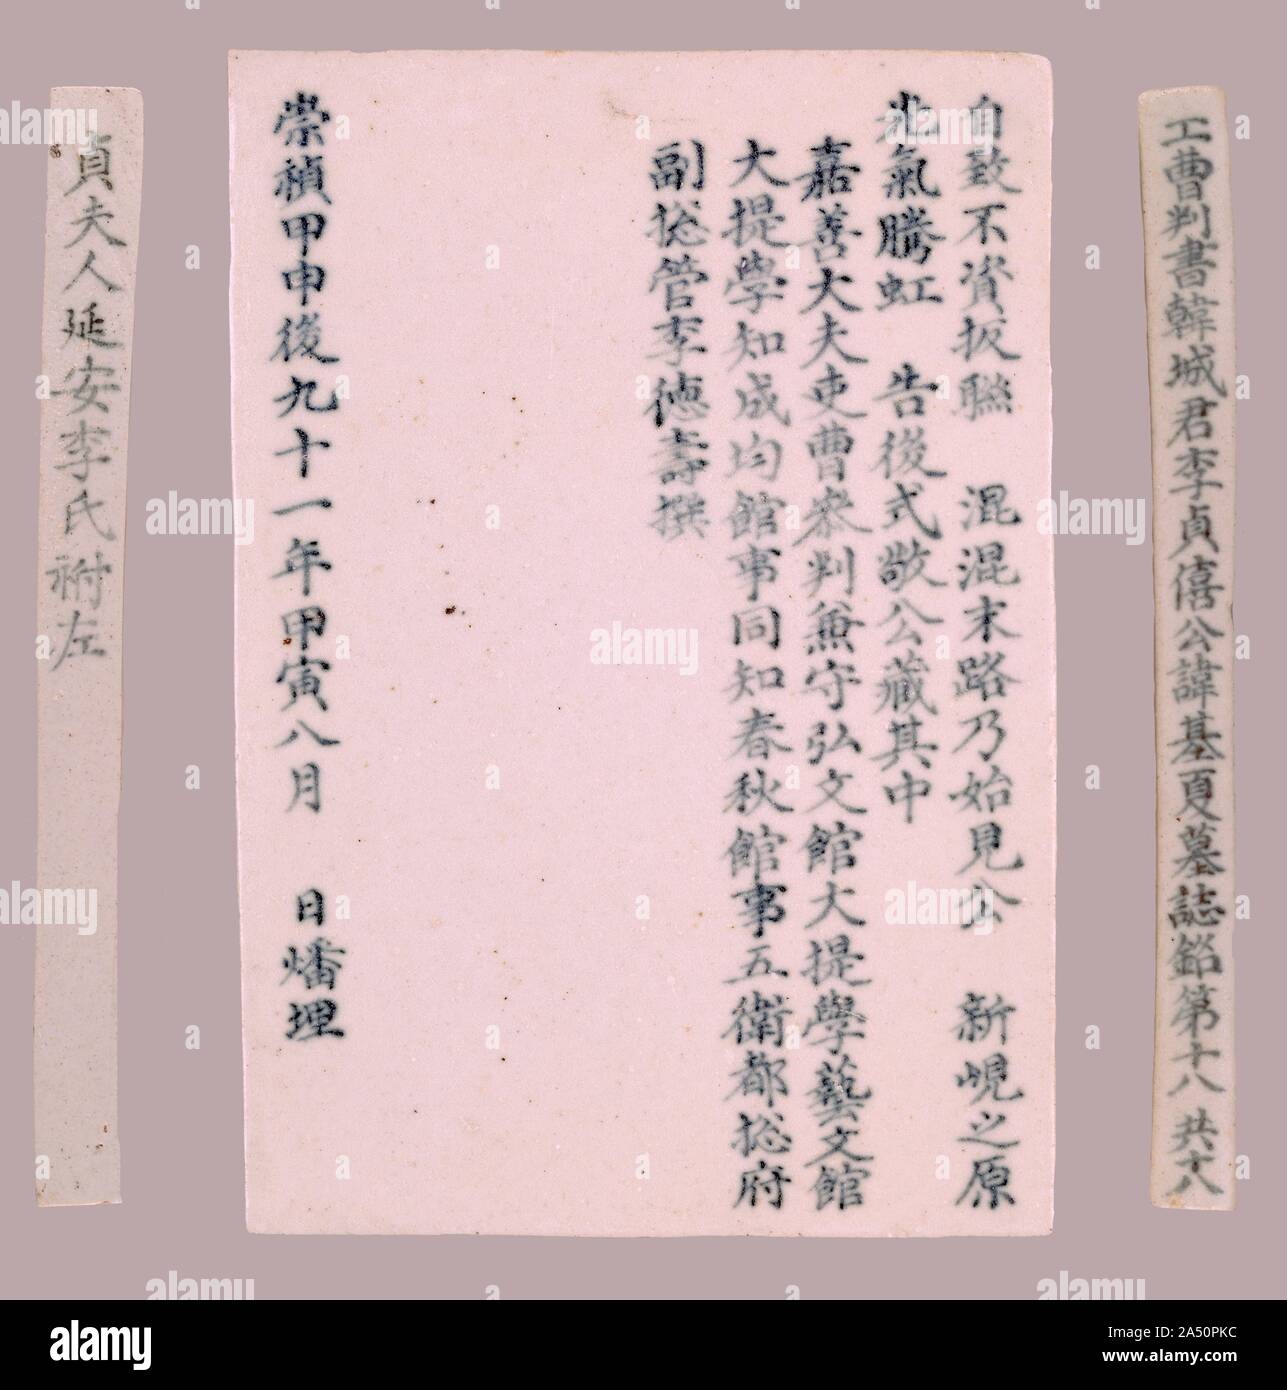 工曹判書韓城君李貞僖公諱基夏墓誌銘第十八 共十八
自致不資扳聮 混混末路乃始見公 新峴之原
兆氣騰虹 告後式敬公藏其中
嘉善大夫吏曹叅判兼守弘文館大提學藝文館
大提學知成均館事同知春秋館事五衛都摠府
副摠管李德壽撰
崇禎甲申後九十一年甲寅八月 日燔埋
貞夫人延安李氏祔左
alamy
Image ID: 2A50PKC
www.alamy.com